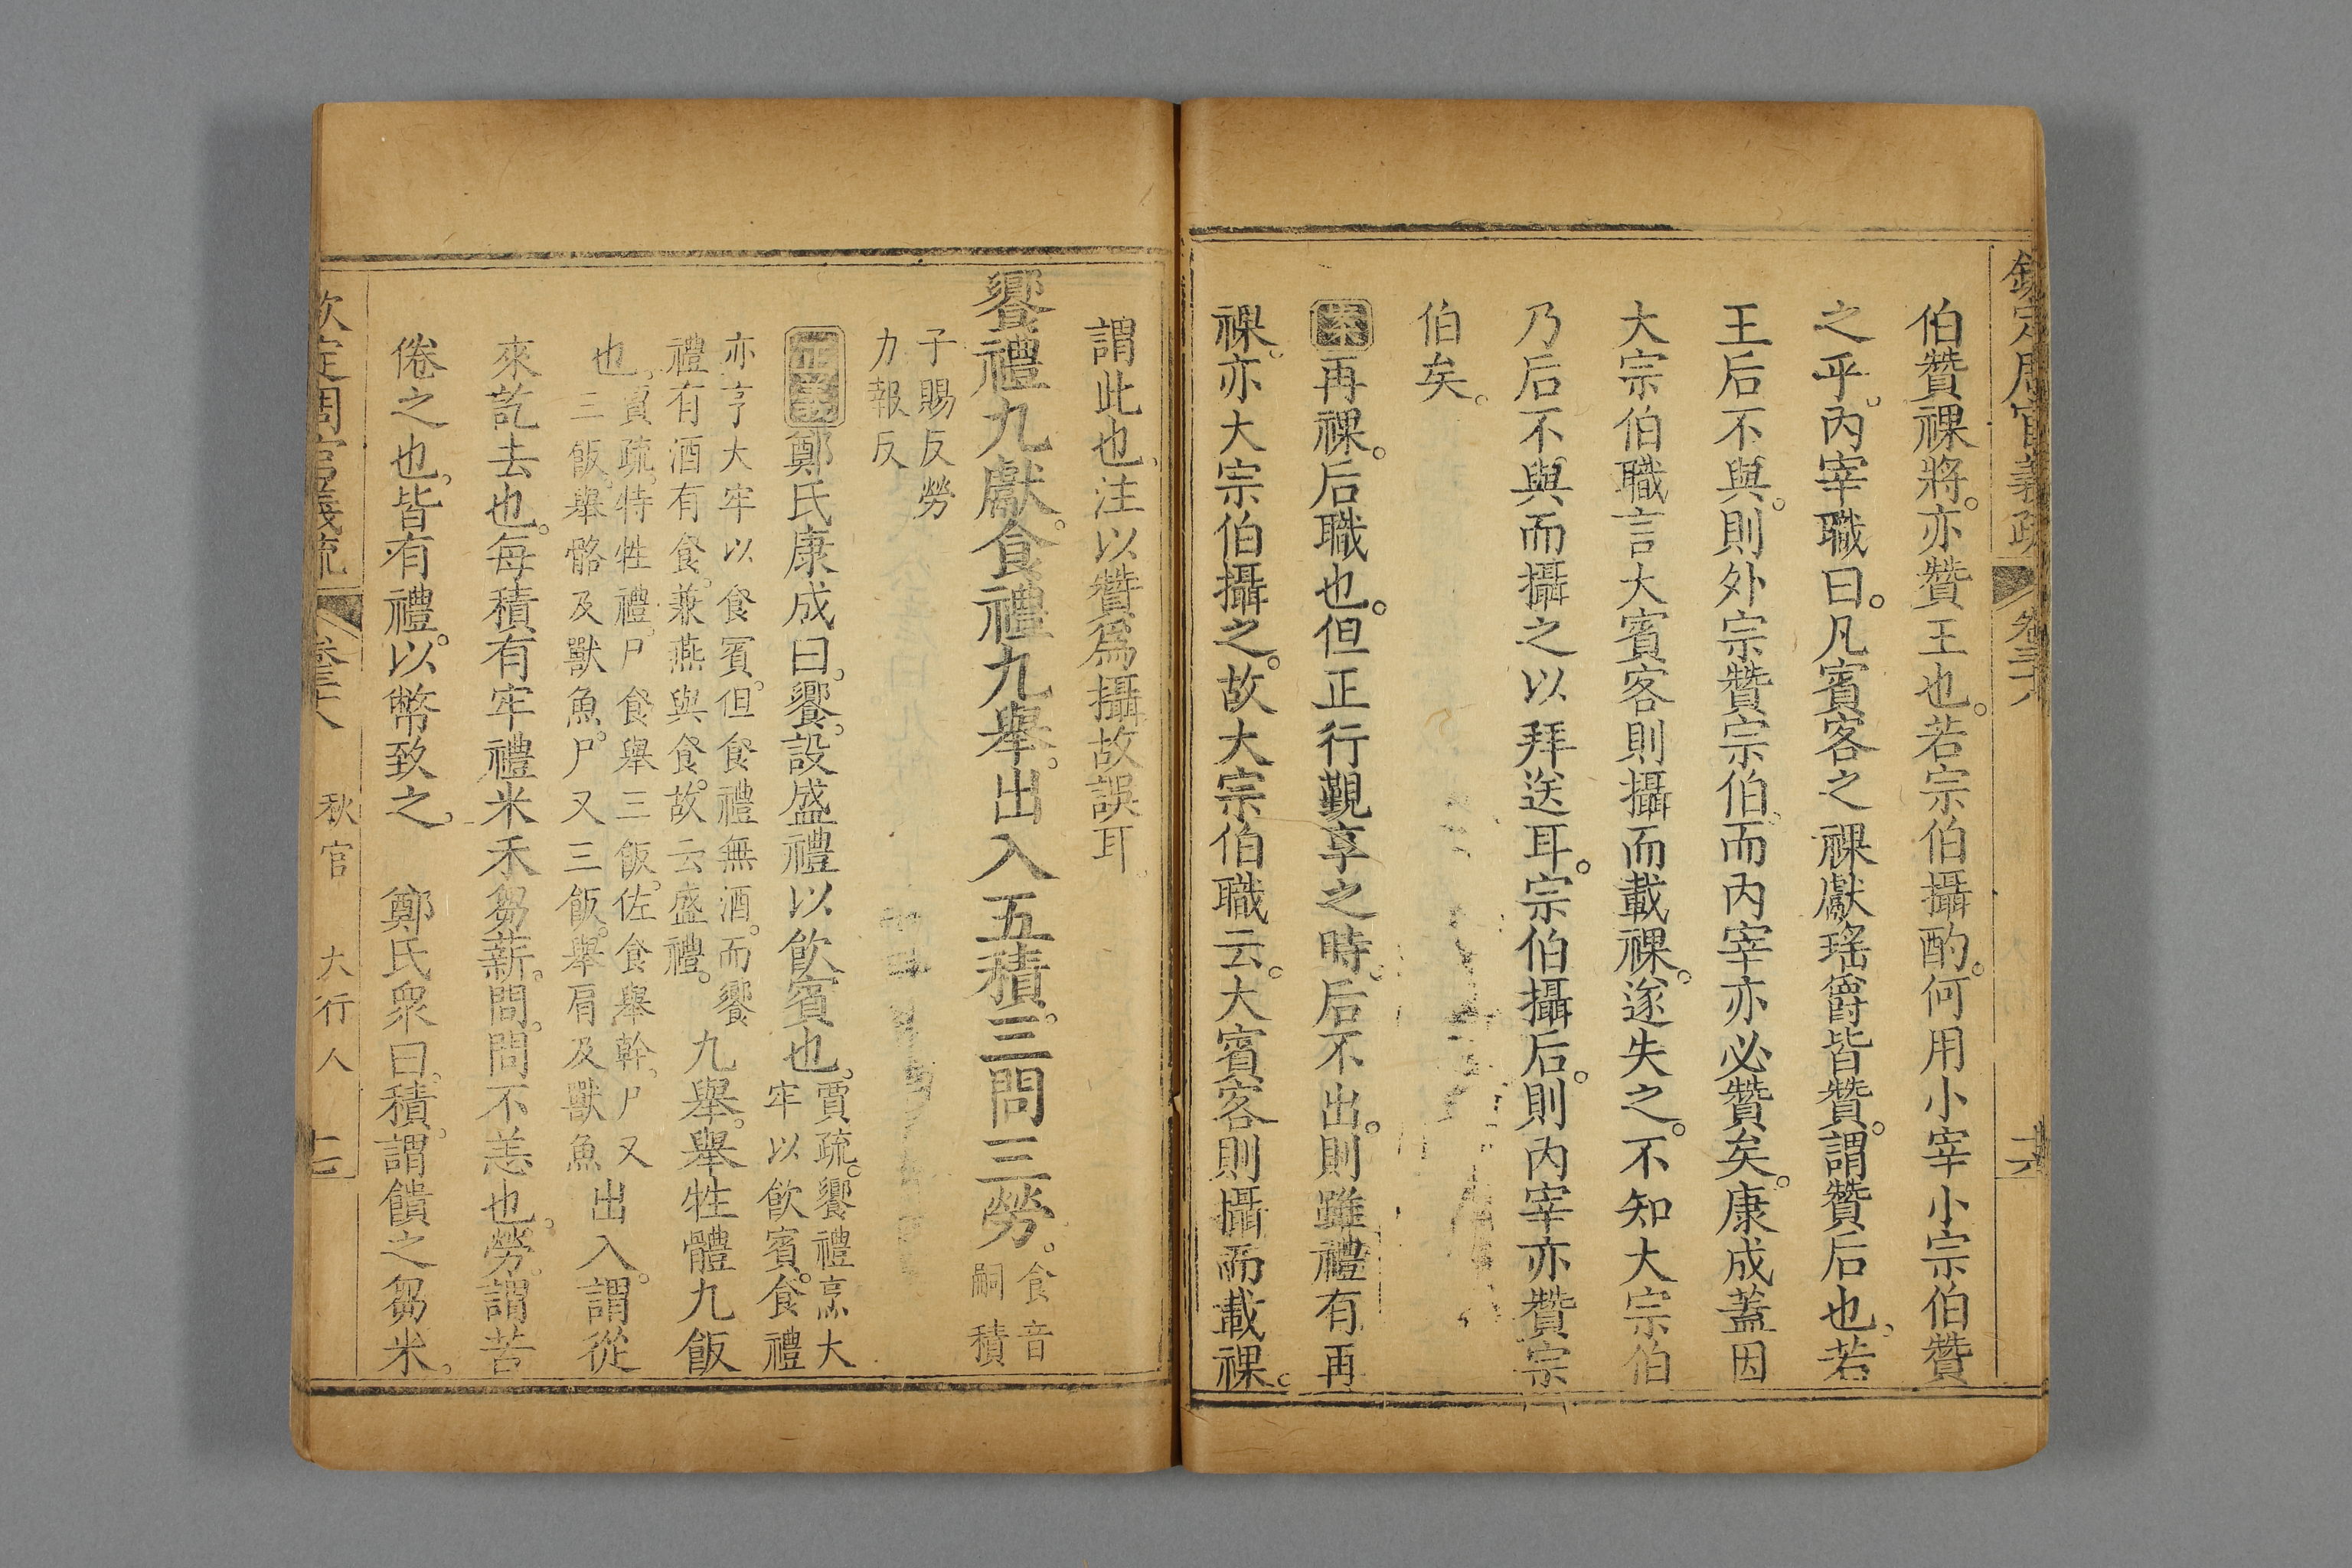 欽定周官義疏 卷三十八 十六
伯贊祼將。亦贊王也。若宗伯攝酌。何用小宰小宗伯贊
之乎。內宰職曰。凡賓客之祼獻瑤爵皆贊。謂贊后也。若
王后不與。則外宗贊宗伯。而內宰亦必贊矣。康成蓋因
大宗伯職言大賓客則攝而載祼。遂失之。不知大宗伯
乃后不與而攝之以拜送耳。宗伯攝后。則內宰亦贊宗
伯矣。
案再祼。后職也。但正行覲享之時。后不出。則雖禮有再
祼。亦大宗伯攝之。故大宗伯職云。大賓客則攝而載祼。
謂此也。注以贊爲攝故誤耳。
饗禮九獻。食禮九舉。出入五積。三問三勞。食音
嗣積
子賜反勞
力報反
正義鄭氏康成曰。饗。設盛禮以飲賓也。賈疏。饗禮烹大
牢以飲賓。食禮
亦亨大牢以食賓。但食禮無酒。而饗
禮有酒有食。兼燕與食。故云盛禮。九舉。舉牲體九飯
也。賈疏。特牲禮。尸食舉三飯。佐食舉幹。尸又
三飯。舉骼及獸魚。尸又三飯。舉肩及獸魚出入。謂從
來訖去也。每積有牢禮米禾芻薪。問。問不恙也。勞。謂苦
倦之也。皆有禮。以幣致之。 鄭氏衆曰。積。謂饋之芻米。
欽定周官義疏 卷三十八 秋官 大行人 十七